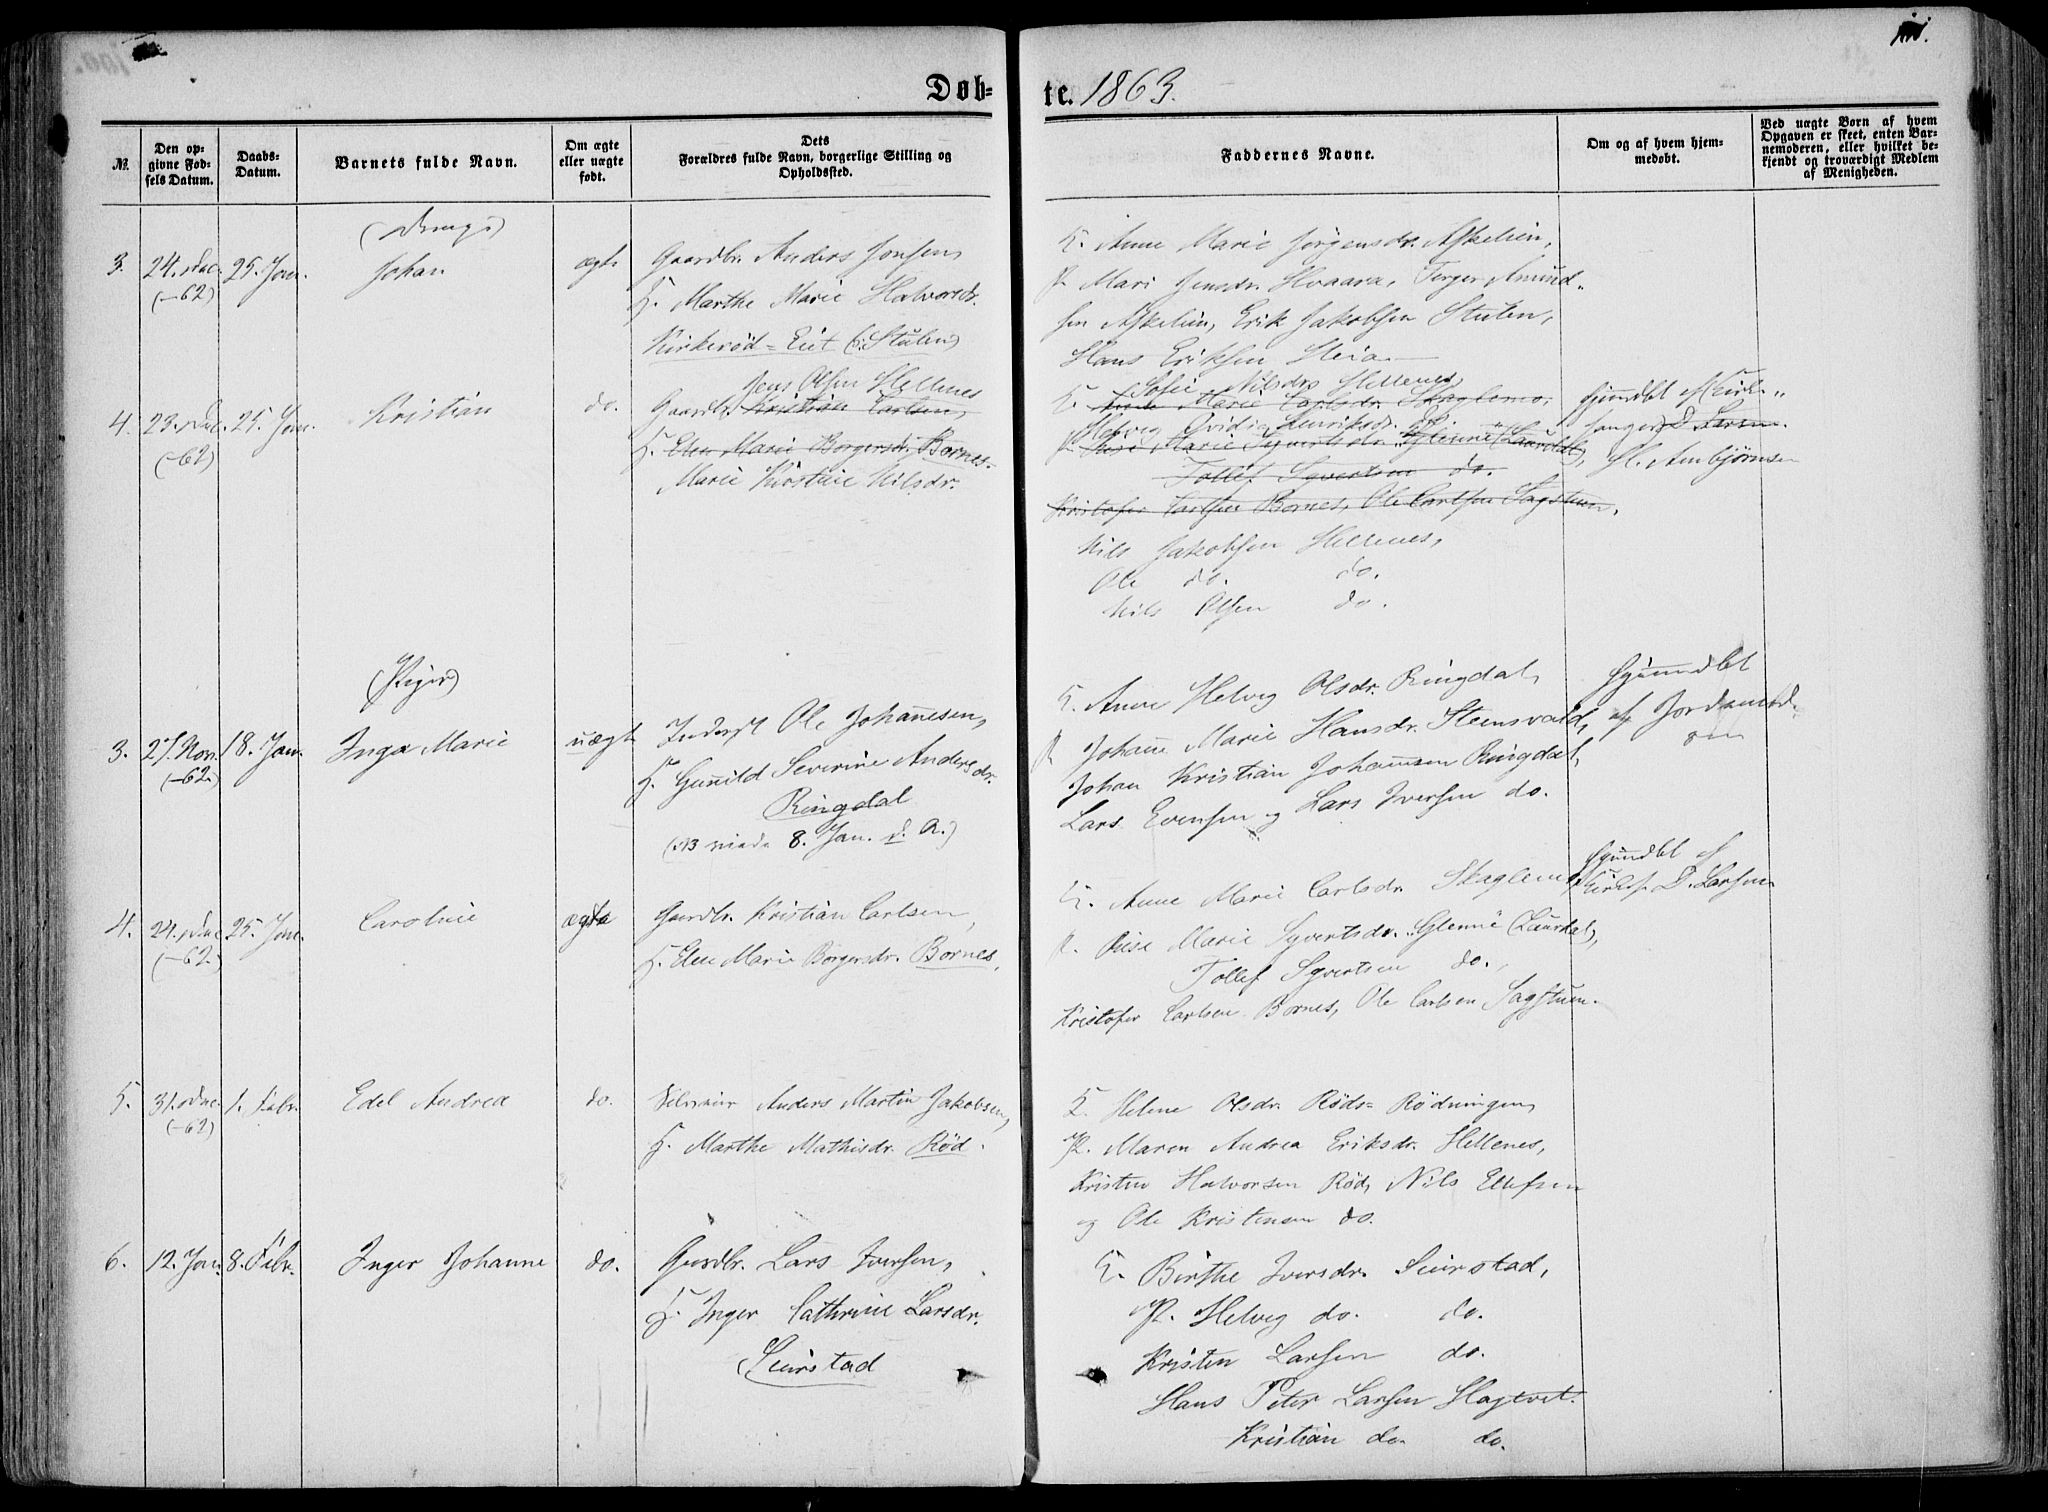 Døb=
te. 1863.
№.
Den op=
givne Fød=
sels Datum.
Daabs=
Datum.
Barnets fulde Navn.
Om ægte
eller uægte
født.
Dets
Forældres fulde Navn, borgerlige Stilling og
Opholdssted.
Faddernes Navne.
Om og af hvem hjem=
medøbt.
Ved uægte Børn af hvem
Opgaven er skeet, enten Bar=
nemoderen, eller hvilket be=
kjendt og troværdigt Medlem
af Menigheden.
(Drenge)
3. 24. Dec. 25. Jan. Johan ægte Gaardbr. Anders Jonsen,
(-62)
H. Marthe Marie Halvorsdr.
Kirkerød=Eiet (: Stulen)
K. Anne Marie Jørgensdr. Askelien,
P. Mari Jensdr. Hvaara, Terger Amund=
sen Askelien, Erik Jakobsen Stulen,
Hans Eriksen Heia.
4. 23. Dec. 25. Jan. Kristian do. Gaardbr. Kristian Carlsen,
(-62)
Jens Olsen Hellenes
H. Elen Marie Borgersdr. Bornes.
Marie Kirstine Nilsdr.
Sofie Nilsdr. Hellenes,
K. Anne Marie Carlsdr. Skaglemo,
Helvig Ovidia Henriksdr. do
P. Anse Marie Syvertsdr. Glenne (Laurdal),
Tollef Syvertsen do.
Kristofer Carlsen Bornes, Ole Carlsen Sagstuen.
Nils Jakobsen Hellenes,
Ole do. do.
Nils Olsen do.
hjemdøbt af Kirke=
sanger D. Larsen.
H. Ambjørnsen
(Piger)
3. 27. Nov. 18. Jan. Inga Marie uægte Inderst Ole Johannesen,
(-62)
H. Gunild Severine Andersdr.
Ringdal
8. Jan. d. A.)
K. Anne Helvig Olsdr. Ringdal,
P. Johanne Marie Hansdr. Steensvald,
Johan Kristian Johannesen Ringdal,
Lars Evensen og Lars Iversen do.
hjemdøbt
af Jordemod.
4. 24. Dec. 25. Jan. Caroline ægte Gaardbr. Kristian Carlsen,
(-62)
H. Elen Marie Borgersdr. Bornes.
K. Anne Marie Carlsdr. Skaglemo,
P. Anse Marie Syvertsdr. Glenne (Laurdal),
Tollef Syvertsen do.,
Kristofer Carlsen Bornes, Ole Carlsen Sagstuen.
hjemdøbt af
Kirkes. D. Larsen
5. 31. Dec. 1. Febr. Edel Andrea do. Anders Martin Jakobsen,
(-62)
H. Marthe Mathisdr. Rød.
K. Helene Olsdr. Røds=Rødningen,
P. Maren Andrea Eriksdr. Hellenes,
Kristen Halvorsen Rød, Nils Ellefsen
og Ole Kristensen do.
6. 12. Jan. 8. Febr. Inger Johanne do. Gaardbr. Lars Iversen,
H. Inger Cathrine Larsdr.
Seierstad
K. Birthe Iversdr. Seierstad,
P. Helvig do. do.
Kristen Larsen do.
Hans Peter Larsen Hagtvet.
Kristian do. do.